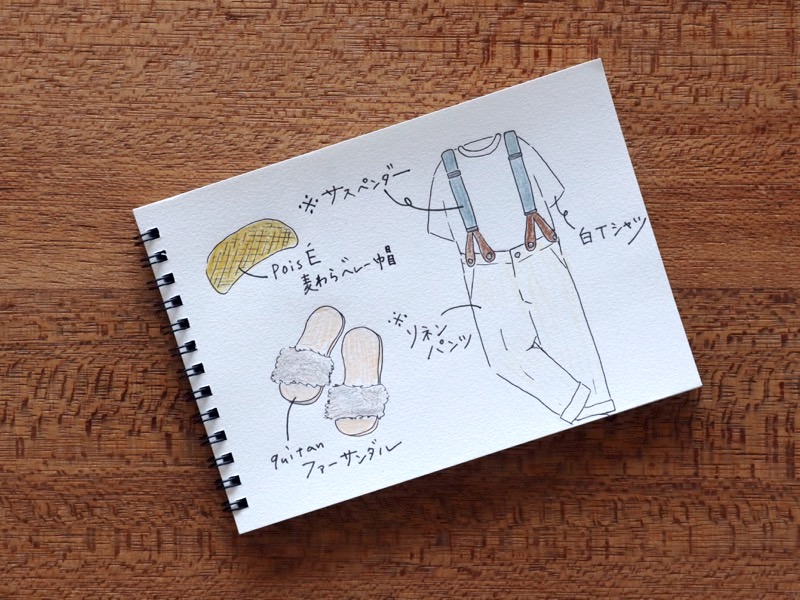 ※サスペンダー
白Tシャツ
poisÉ
麦わらベレー帽
※
リネン
パンツ
quitan
ファーサンダル